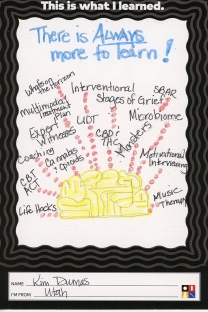 This is what I learned.
There is ALWAYS
more to learn!
Interventional
Stages of Grief
SBAR
Microbiome
Multimodal
Treatment
Plan
UDT
Expert
Witnesses
CBD/
THC
Monsters
Coaching
Cannabis
+ Opioids
Motivational
Interviewing
CBT
ACT
Life Hacks
Music
Therapy
NAME Kim Dumas
I'M FROM Utah